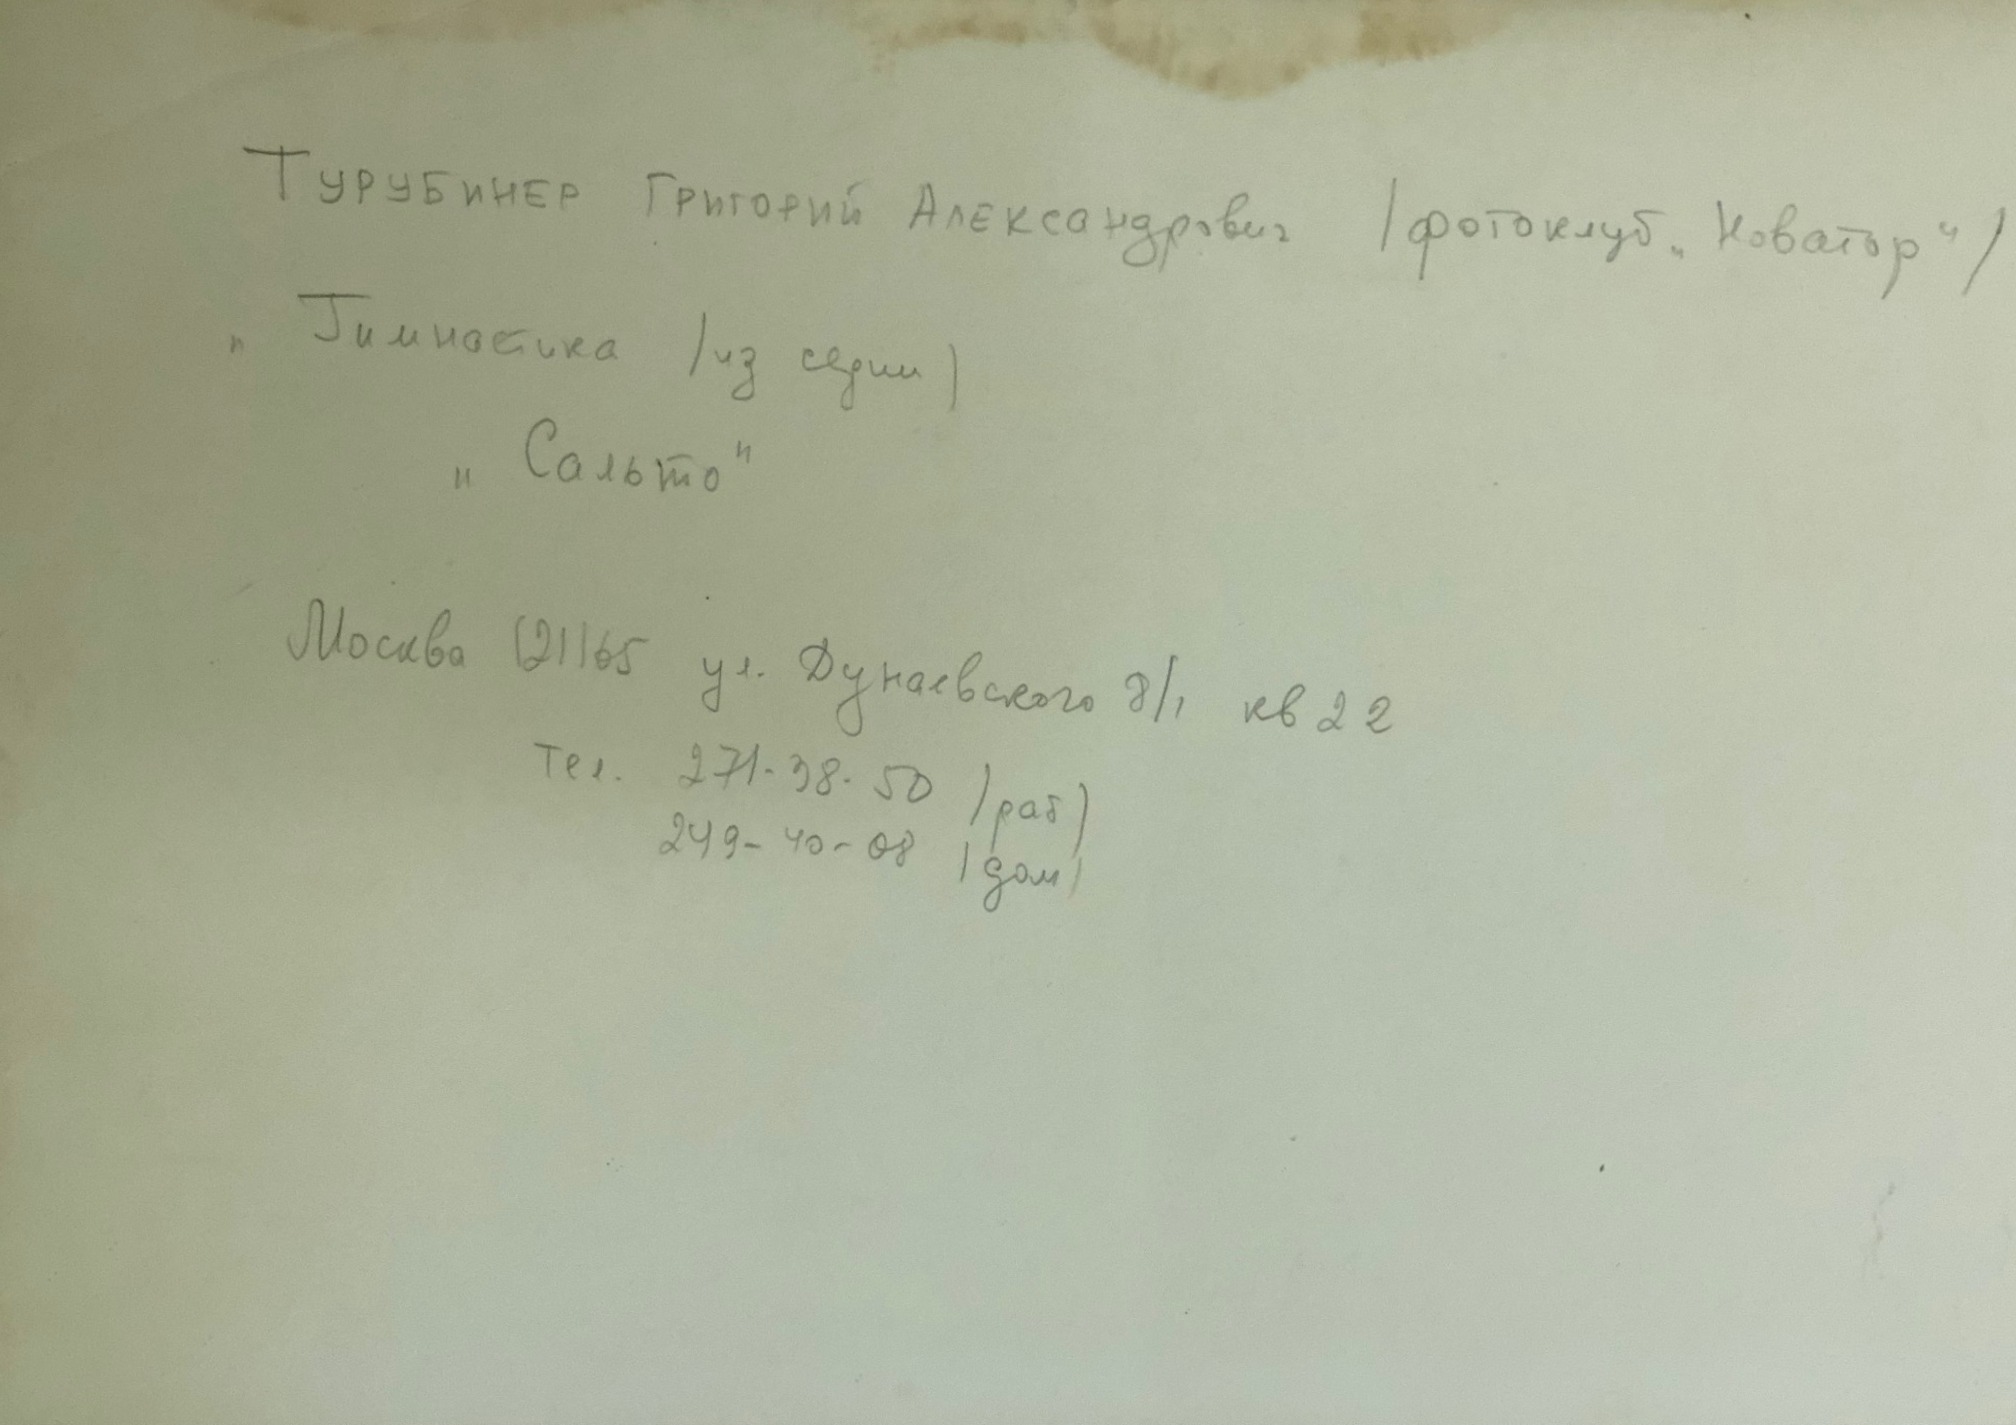 Турубинер Григорий Александрович /фотоклуб „Новатор"/
" Гимнастика /из серии)
" Сальто"
Москва 121165 ул. Дунаевского 8/1 кв 22
Тел. 271-38-50 /раб)
249-40-08 /дом/